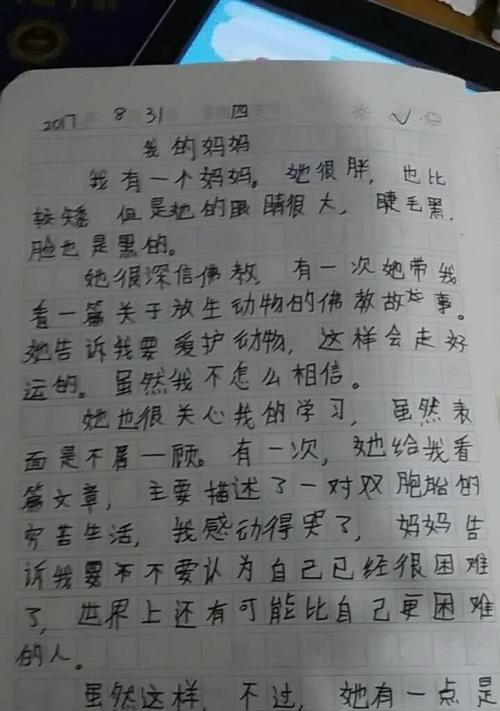 2017年 8月31日 星期四
我的妈妈
我有一个妈妈。她很胖,也比
较矮 但是她的眼睛很大,睫毛黑,
脸也是黑的。
她很深信佛教,有一次她带我
看一篇关于放生动物的佛教故事。
她告诉我要爱护动物,这样会走好
运的。虽然我不怎么相信。
她也很关心我的学习,虽然表
面是不屑一顾。有一次,她给我看
篇文章,主要描述了一对双胞胎的
穷苦生活,我感动得哭了,妈妈告
诉我要不不要认为自己已经很困难
了,世界上还有可能比自己更困难
的人。
虽然这样,不过,她有一点是